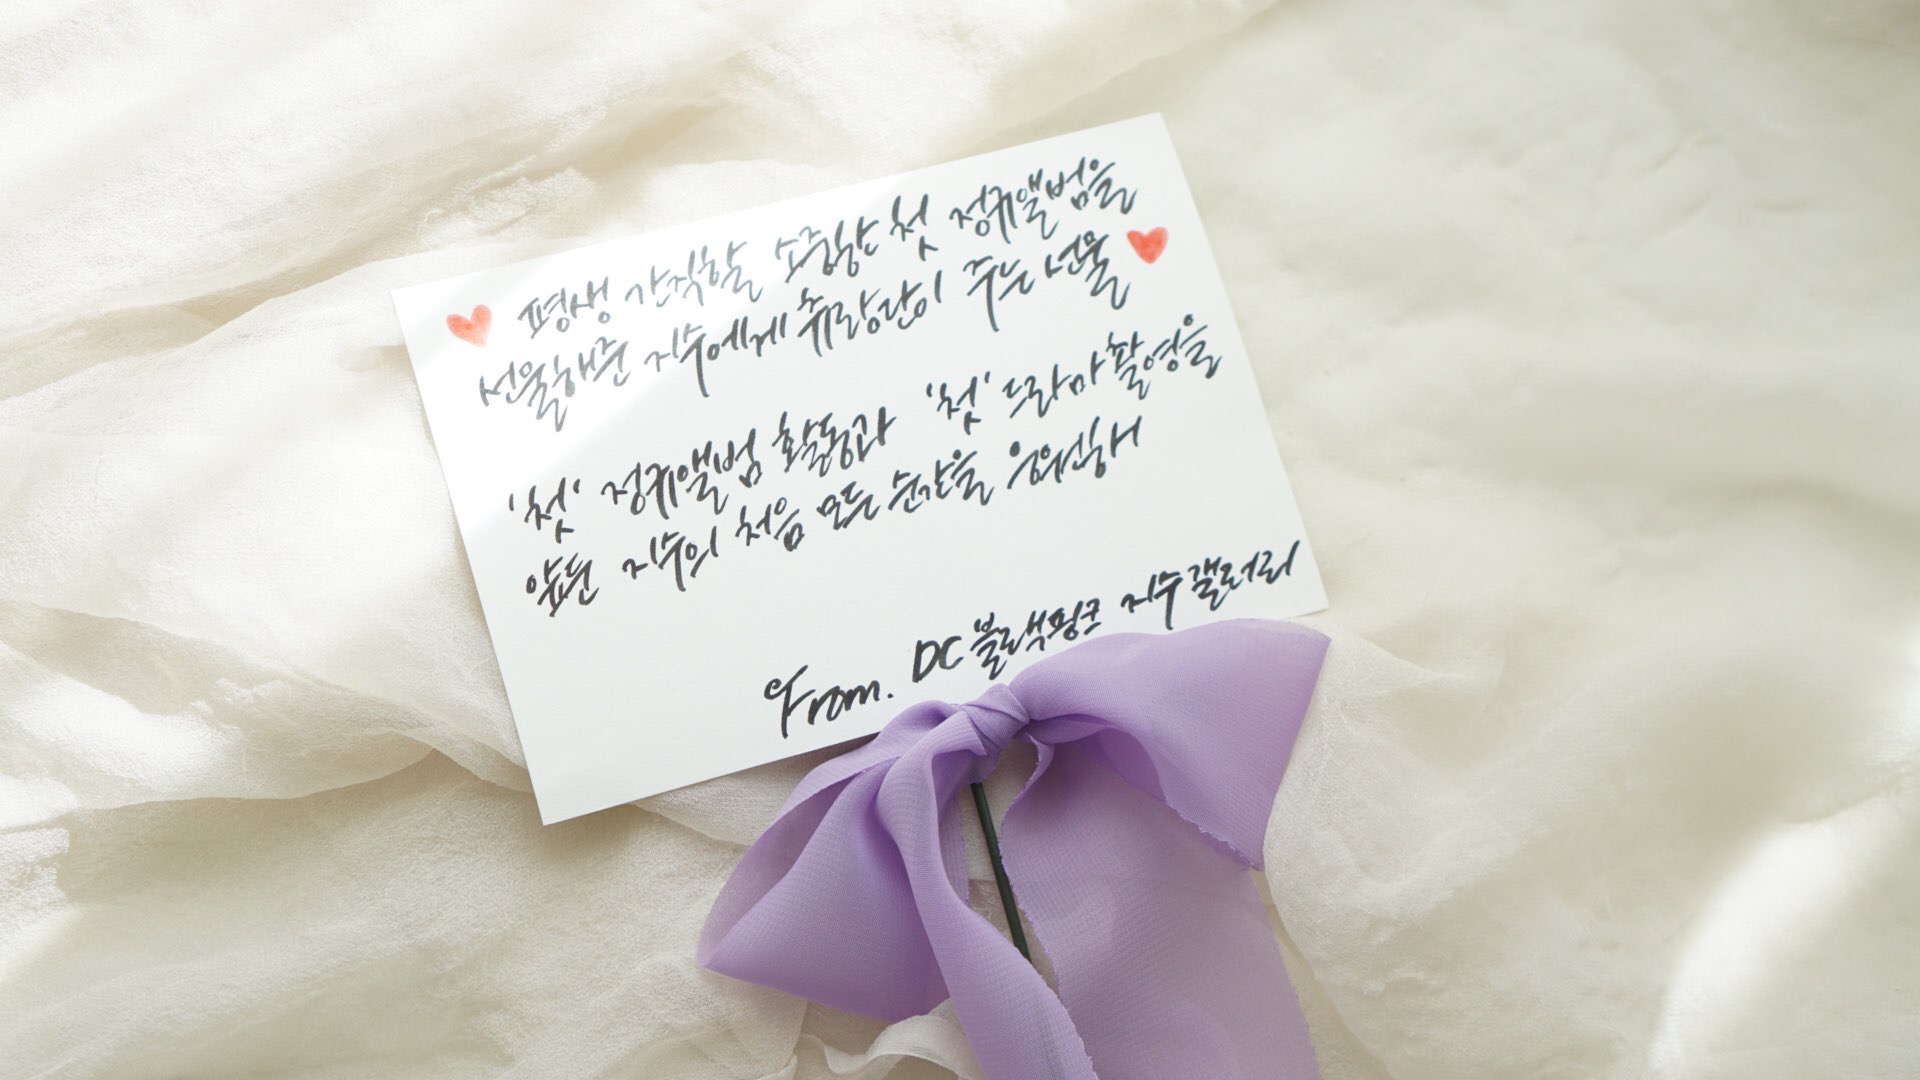 평생 간직할 소중한 첫 정규앨범을
선물해준 지수에게 츄랑단이 주는 선물
'첫' 정규앨범 활동과 '첫' 드라마 촬영을
앞둔 지수의 처음 모든 순간을 응원해
From. DC 블랙핑크 지수 갤러리